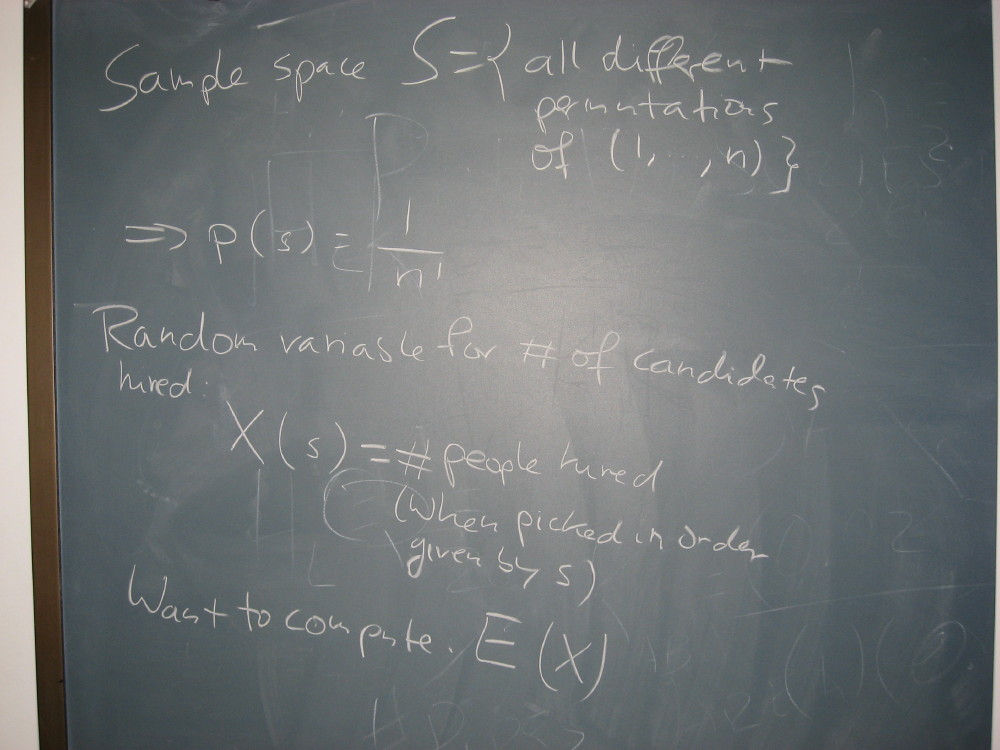 Sample space S = { all different
permutations
of (1, ..., n) }
=> p(s) = 1/n!
Random variable for # of candidates
hired:
X(s) = # people hired
(when picked in order
given by s)
Want to compute. E(X)